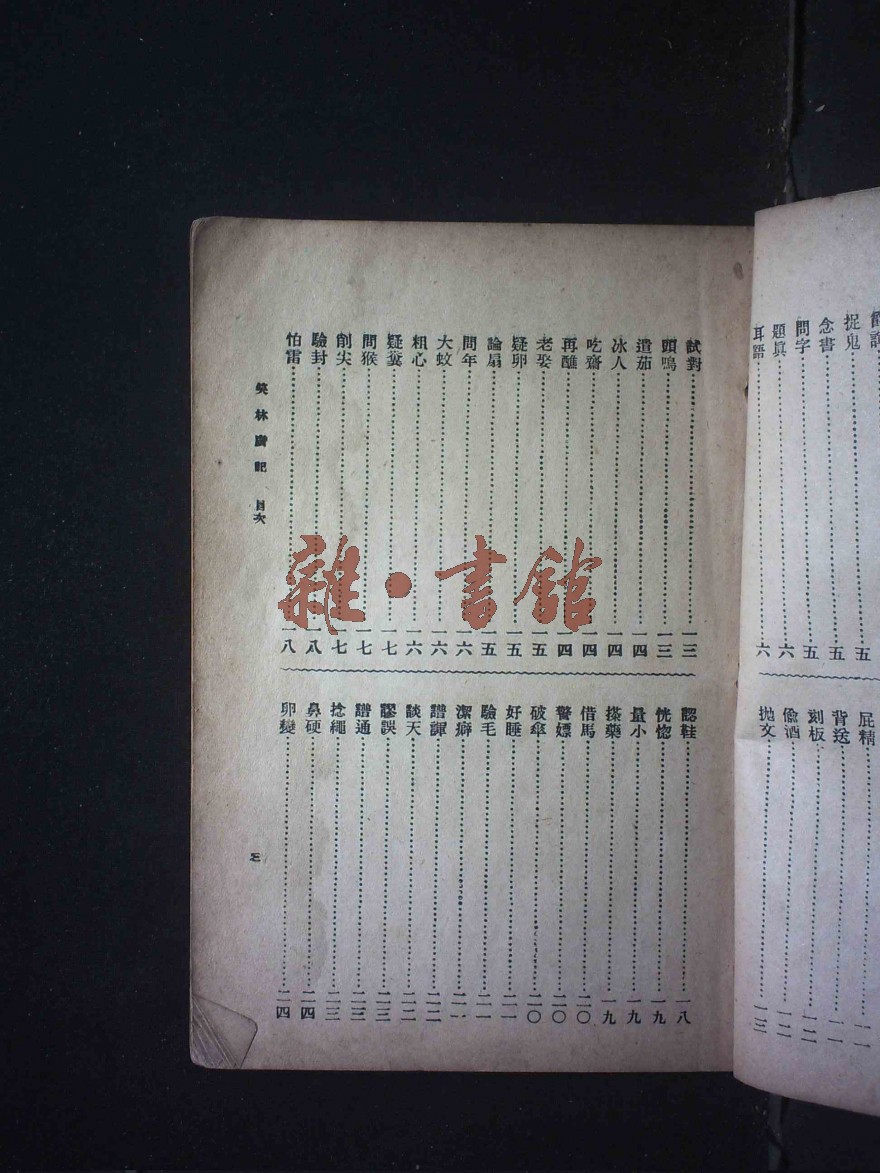 捉鬼……五
念書……五
問字……五
題真……六
耳語……六
屁精……一一
背送……一一
刻板……一二
偸酒……一二
抛文……一三
試對……一三
頭鳴……一三
遣茄……一四
冰人……一四
吃齋……一四
再醮……一四
老娶……一五
疑卵……一五
論扇……一五
問年……一六
大蚊……一六
粗心……一六
疑糞……一七
問猴……一七
削尖……一七
驗封……一八
怕雷……一八
認鞋……一八
恍惚……一九
量小……一九
搽藥……一九
借馬……二〇
警嫖……二〇
破傘……二〇
好睡……二一
驗毛……二一
潔癖……二一
譜諢……二二
談天……二二
謬誤……二三
譜通……二三
捻繩……二三
鼻硬……二四
卵變……二四
笑林廣記 目次
三
雜·書館